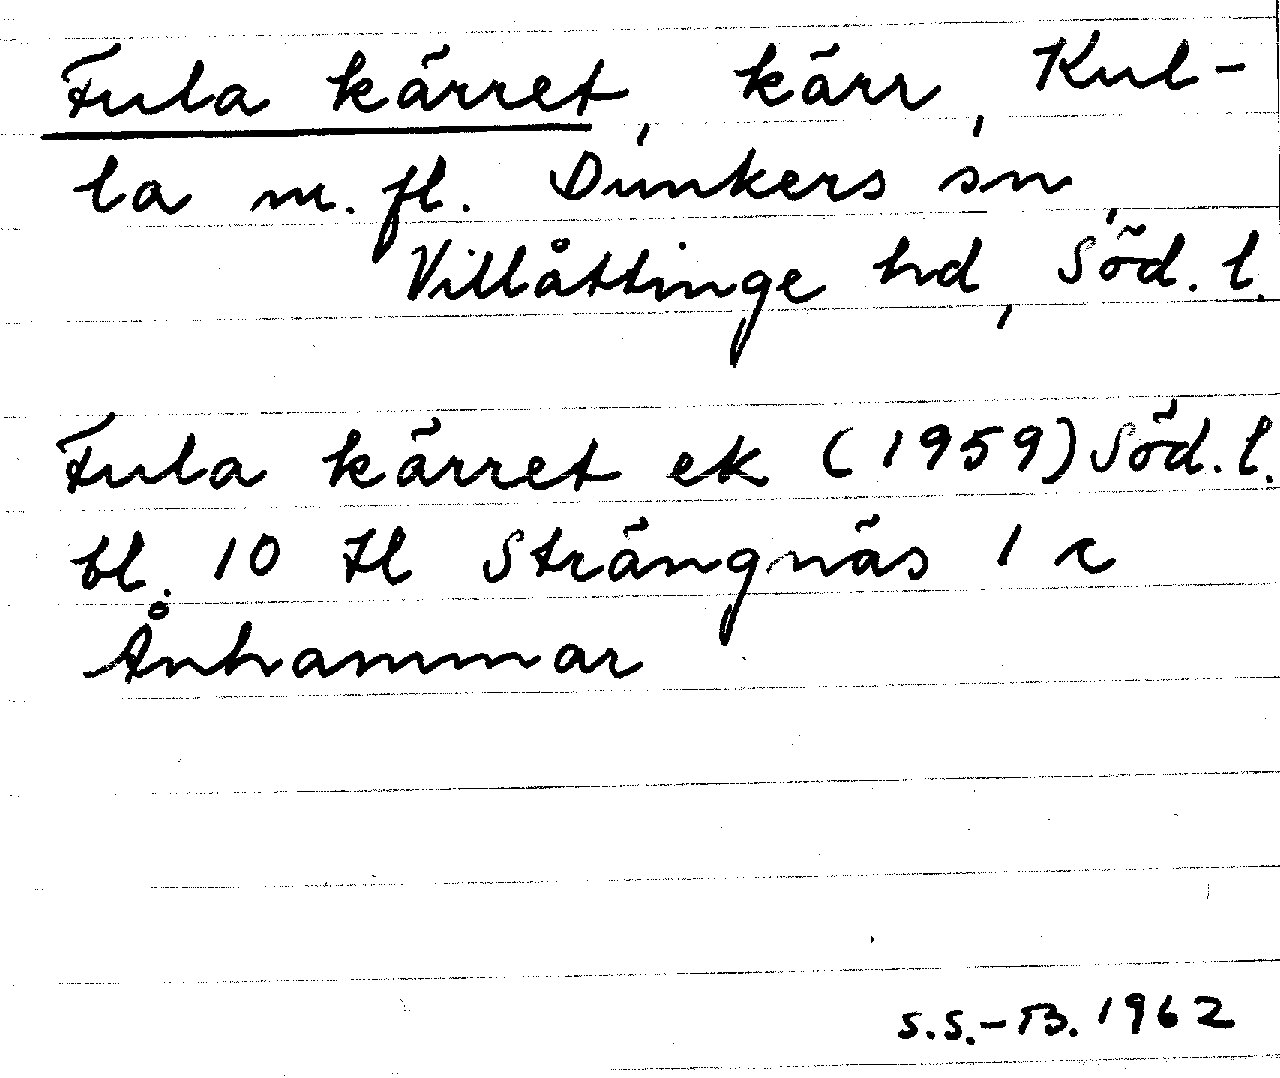 Fula kärret, kärr, Kul-
la m. fl. Dunkers sn,
Villåttinge hd, Söd. l.
Fula kärret ek (1959) Söd. l.
bl. 10 tl Strängnäs 1 c
Ånhammar
S.S.-B. 1962